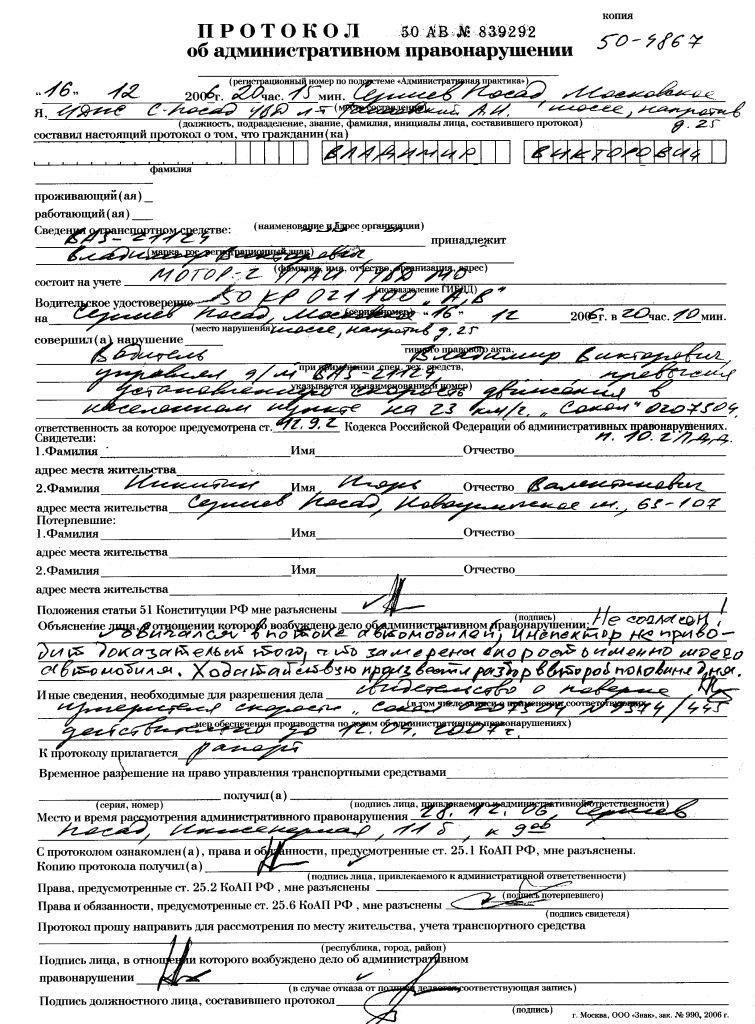 копия
ПРОТОКОЛ 50 АВ № 839292
об административном правонарушении 50-4867
(регистрационный номер по подсистеме «Административная практика»)
"16" 12 2006г. 20 час. 15 мин. Сергиев Посад Московское
(место составления)
Я, С-Посад л-т А.И. шоссе, напротив
(должность, подразделение, звание, фамилия, инициалы лица, составившего протокол) д. 25
составил настоящий протокол о том, что гражданин(ка)
ВЛАДИМИР ВИКТОРОВИЧ
фамилия
проживающий(ая)
работающий(ая)
(наименование и адрес организации)
Сведения о транспортном средстве:
ВАЗ-21124 принадлежит
(марка, гос. регистрационный знак)
Владимир Викторович,
(фамилия, имя, отчество, организация, адрес)
состоит на учете МОТОР-2 ГАИ ГУВД МО
(подразделение ГИБДД)
Водительское удостоверение 50 КР 021100 "А,В"
(серия, номер)
на Сергиев Посад, Московское "16" 12 2006г. в 20 час. 10 мин.
(место нарушения) шоссе, напротив д. 25
совершил(а) нарушение
тивного правового акта,
Водитель Владимир Викторович,
при применении спец. тех. средств,
управлял а/м ВАЗ-21124, превысил
указывается их наименование и номер)
установленную скорость движения в
населенном пункте на 23 км/г. "Сокол" 0207504,
ответственность за которое предусмотрена ст. 12.9.2 Кодекса Российской Федерации об административных правонарушениях.
п. 10.2 ПДД
Свидетели:
1.Фамилия Имя Отчество
адрес места жительства
2.Фамилия Никитин Имя Игорь Отчество Валентинович
адрес места жительства Сергиев Посад, Новоугличское ш., 63-107
Потерпевшие:
1.Фамилия Имя Отчество
адрес места жительства
2.Фамилия Имя Отчество
адрес места жительства
Положения статьи 51 Конституции РФ мне разъяснены
(подпись)
Объяснение лица, в отношении которого возбуждено дело об административном правонарушении: Не согласен!
Двигался в потоке автомобилей, инспектор не приво-
дит доказательств того, что замерена скорость именно моего
автомобиля. Ходатайствую произвести разбор во второй половине дня.
Иные сведения, необходимые для разрешения дела свидетельство о поверке
(в том числе записи о применении соответствующих
измерителя скорости "Сокол" 0207504 №1374/445
мер обеспечения производства по делам об административных правонарушениях)
действительно до 12.04.2007г.
К протоколу прилагается рапорт
Временное разрешение на право управления транспортными средствами
получил(а)
(серия, номер) (подпись лица, привлекаемого к административной ответственности)
Место и время рассмотрения административного правонарушения 28.12.06, Сергиев
Посад, Инженерная, 11б, к 9 00
С протоколом ознакомлен(а), права и обязанности, предусмотренные ст. 25.1 КоАП РФ, мне разъяснены.
Копию протокола получил(а)
(подпись лица, привлекаемого к административной ответственности)
Права, предусмотренные ст. 25.2 КоАП РФ , мне разъяснены
(подпись потерпевшего)
Права и обязанности, предусмотренные ст. 25.6 КоАП РФ , мне разъснены
(подпись свидетеля)
Протокол прошу направить для рассмотрения по месту жительства, учета транспортного средства
(республика, город, район)
Подпись лица, в отношении которого возбуждено дело об административном
правонарушении
(в случае отказа от подписи делается соответствующая запись)
Подпись должностного лица, составившего протокол
(подпись)
г. Москва, ООО «Знак», зак. № 990, 2006 г.